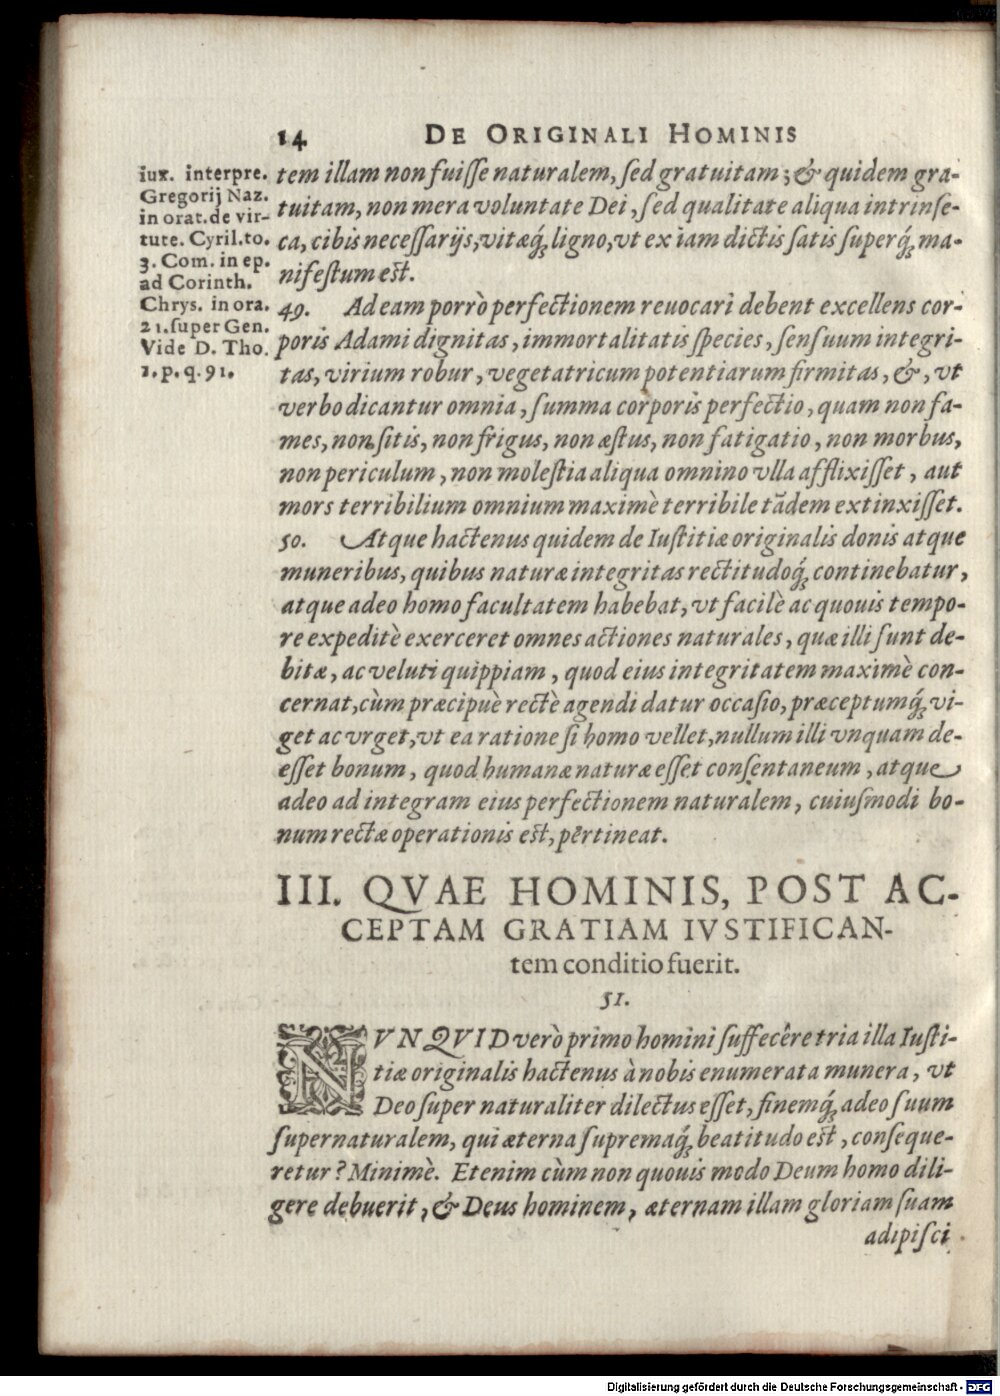 14 DE ORIGINALI HOMINIS
iux. interpre.
Gregorij Naz.
in orat. de vir-
tute. Cyril. to.
3. Com. in ep.
ad Corinth.
Chrys. in ora.
21. super Gen.
Vide D. Tho.
1. p. q. 91.
tem illam non fuiſſe naturalem, ſed gratuitam; & quidem gra-
tuitam, non mera voluntate Dei, ſed qualitate aliqua intrinſe-
ca, cibis neceſſarijs, vitæq́; ligno, vt ex iam dictis ſatis ſuperq́; ma-
nifeſtum eſt.
49. Ad eam porrò perfectionem reuocari debent excellens cor-
poris Adami dignitas, immortalitatis ſpecies, ſenſuum integri-
tas, virium robur, vegetatricum potentiarum firmitas, &, vt
verbo dicantur omnia, ſumma corporis perfectio, quam non fa-
mes, non ſitis, non frigus, non æſtus, non fatigatio, non morbus,
non periculum, non moleſtia aliqua omnino vlla afflixiſſet, aut
mors terribilium omnium maximè terribile tãdem extinxiſſet.
50. Atque hactenus quidem de Iuſtitiæ originalis donis atque
muneribus, quibus naturæ integritas rectitudoq́; continebatur,
atque adeo homo facultatem habebat, vt facilè ac quouis tempo-
re expeditè exerceret omnes actiones naturales, quæ illi ſunt de-
bitæ, ac veluti quippiam, quod eius integritatem maximè con-
cernat, cùm præcipuè rectè agendi datur occaſio, præceptumq́; vi-
get ac vrget, vt ea ratione ſi homo vellet, nullum illi vnquam de-
eſſet bonum, quod humanæ naturæ eſſet conſentaneum, atque
adeo ad integram eius perfectionem naturalem, cuiuſmodi bo-
num rectæ operationis eſt, pertineat.
III. QVAE HOMINIS, POST AC-
CEPTAM GRATIAM IVSTIFICAN-
tem conditio fuerit.
51.
NVNQVID verò primo homini ſuffecêre tria illa Iuſti-
tiæ originalis hactenus à nobis enumerata munera, vt
Deo ſupernaturaliter dilectus eſſet, finemq́; adeo ſuum
ſupernaturalem, qui æterna ſupremaq́; beatitudo eſt, conſeque-
retur? Minimè. Etenim cùm non quouis modo Deum homo dili-
gere debuerit, & Deus hominem, æternam illam gloriam ſuam
adipiſci
Digitalisierung gefördert durch die Deutsche Forschungsgemeinschaft - DFG